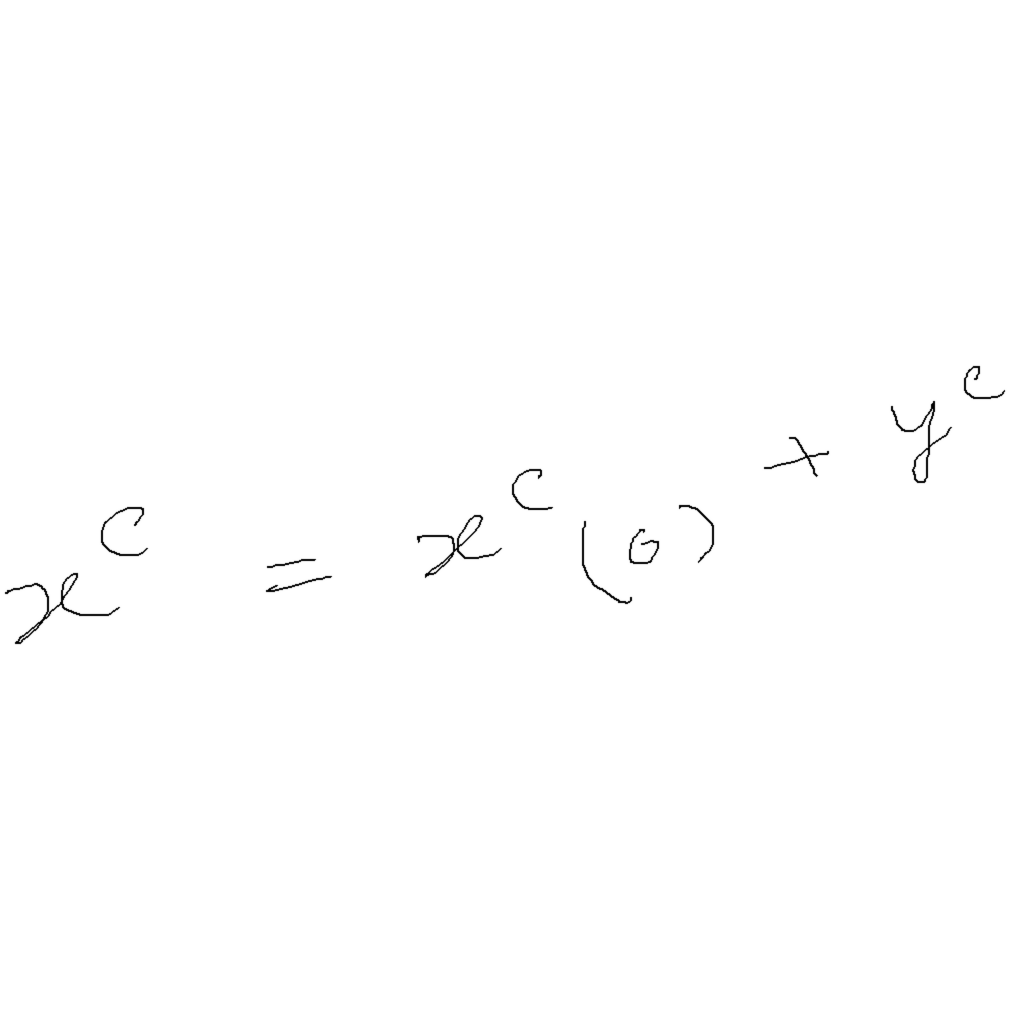 x^c = x^c(6) + y^c